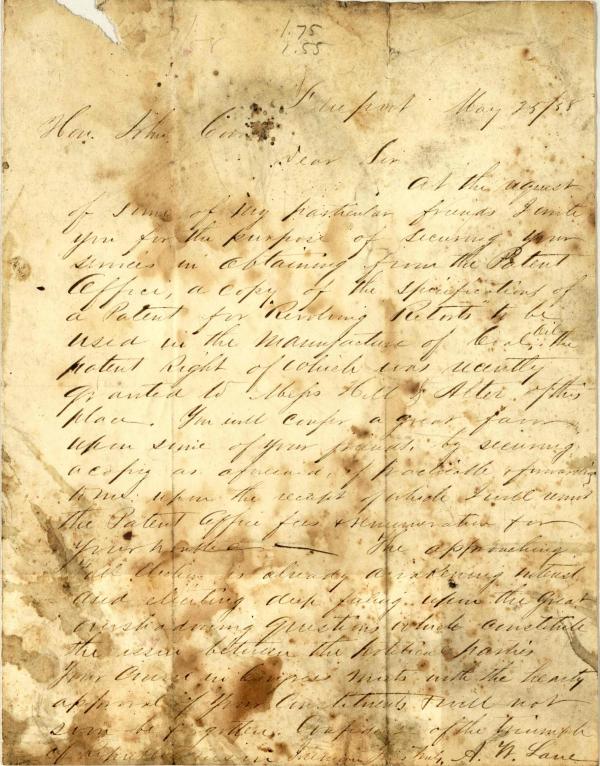 1.75
1.55
Freeport May 25/58
Hon. John
Dear Sir
At the request
of some of my particular friends I write
you for the purpose of securing your
services in obtaining from the Patent
Office, a copy of the specifications of
a Patent for "Revolving Retorts" to be
used in the manufacture of Coal Oil, the
patent right of which was recently
granted to Messrs Hill & Alter of this
place. You will confer a great favor
upon some of your friends by securing
a copy as aforesaid, if practicable & forwarding
to me. upon the receipt of which I will remit
the Patent Office fees & remuneration for
your trouble — The approaching
Fall election is already awakening interest
and eliciting deep feeling upon the Great
overshadowing questions which constitute
the issue between the political parties
Your course in Congress meets with the hearty
approval of your Constituents & will not
soon be forgotten. of the triumph
of A. W. Lane